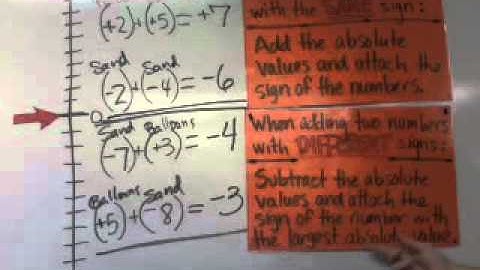 (+2)+(+5)=+7
Sand Sand
(-2)+(-4)=-6
0
Sand Balloons
(-7)+(+3)=-4
Balloons Sand
(+5)+(-8)=-3
with the SAME sign:
Add the absolute
values and attach the
sign of the numbers.
When adding two numbers
with DIFFERENT signs:
Subtract the absolute
values and attach the
sign of the number with
the largest absolute value